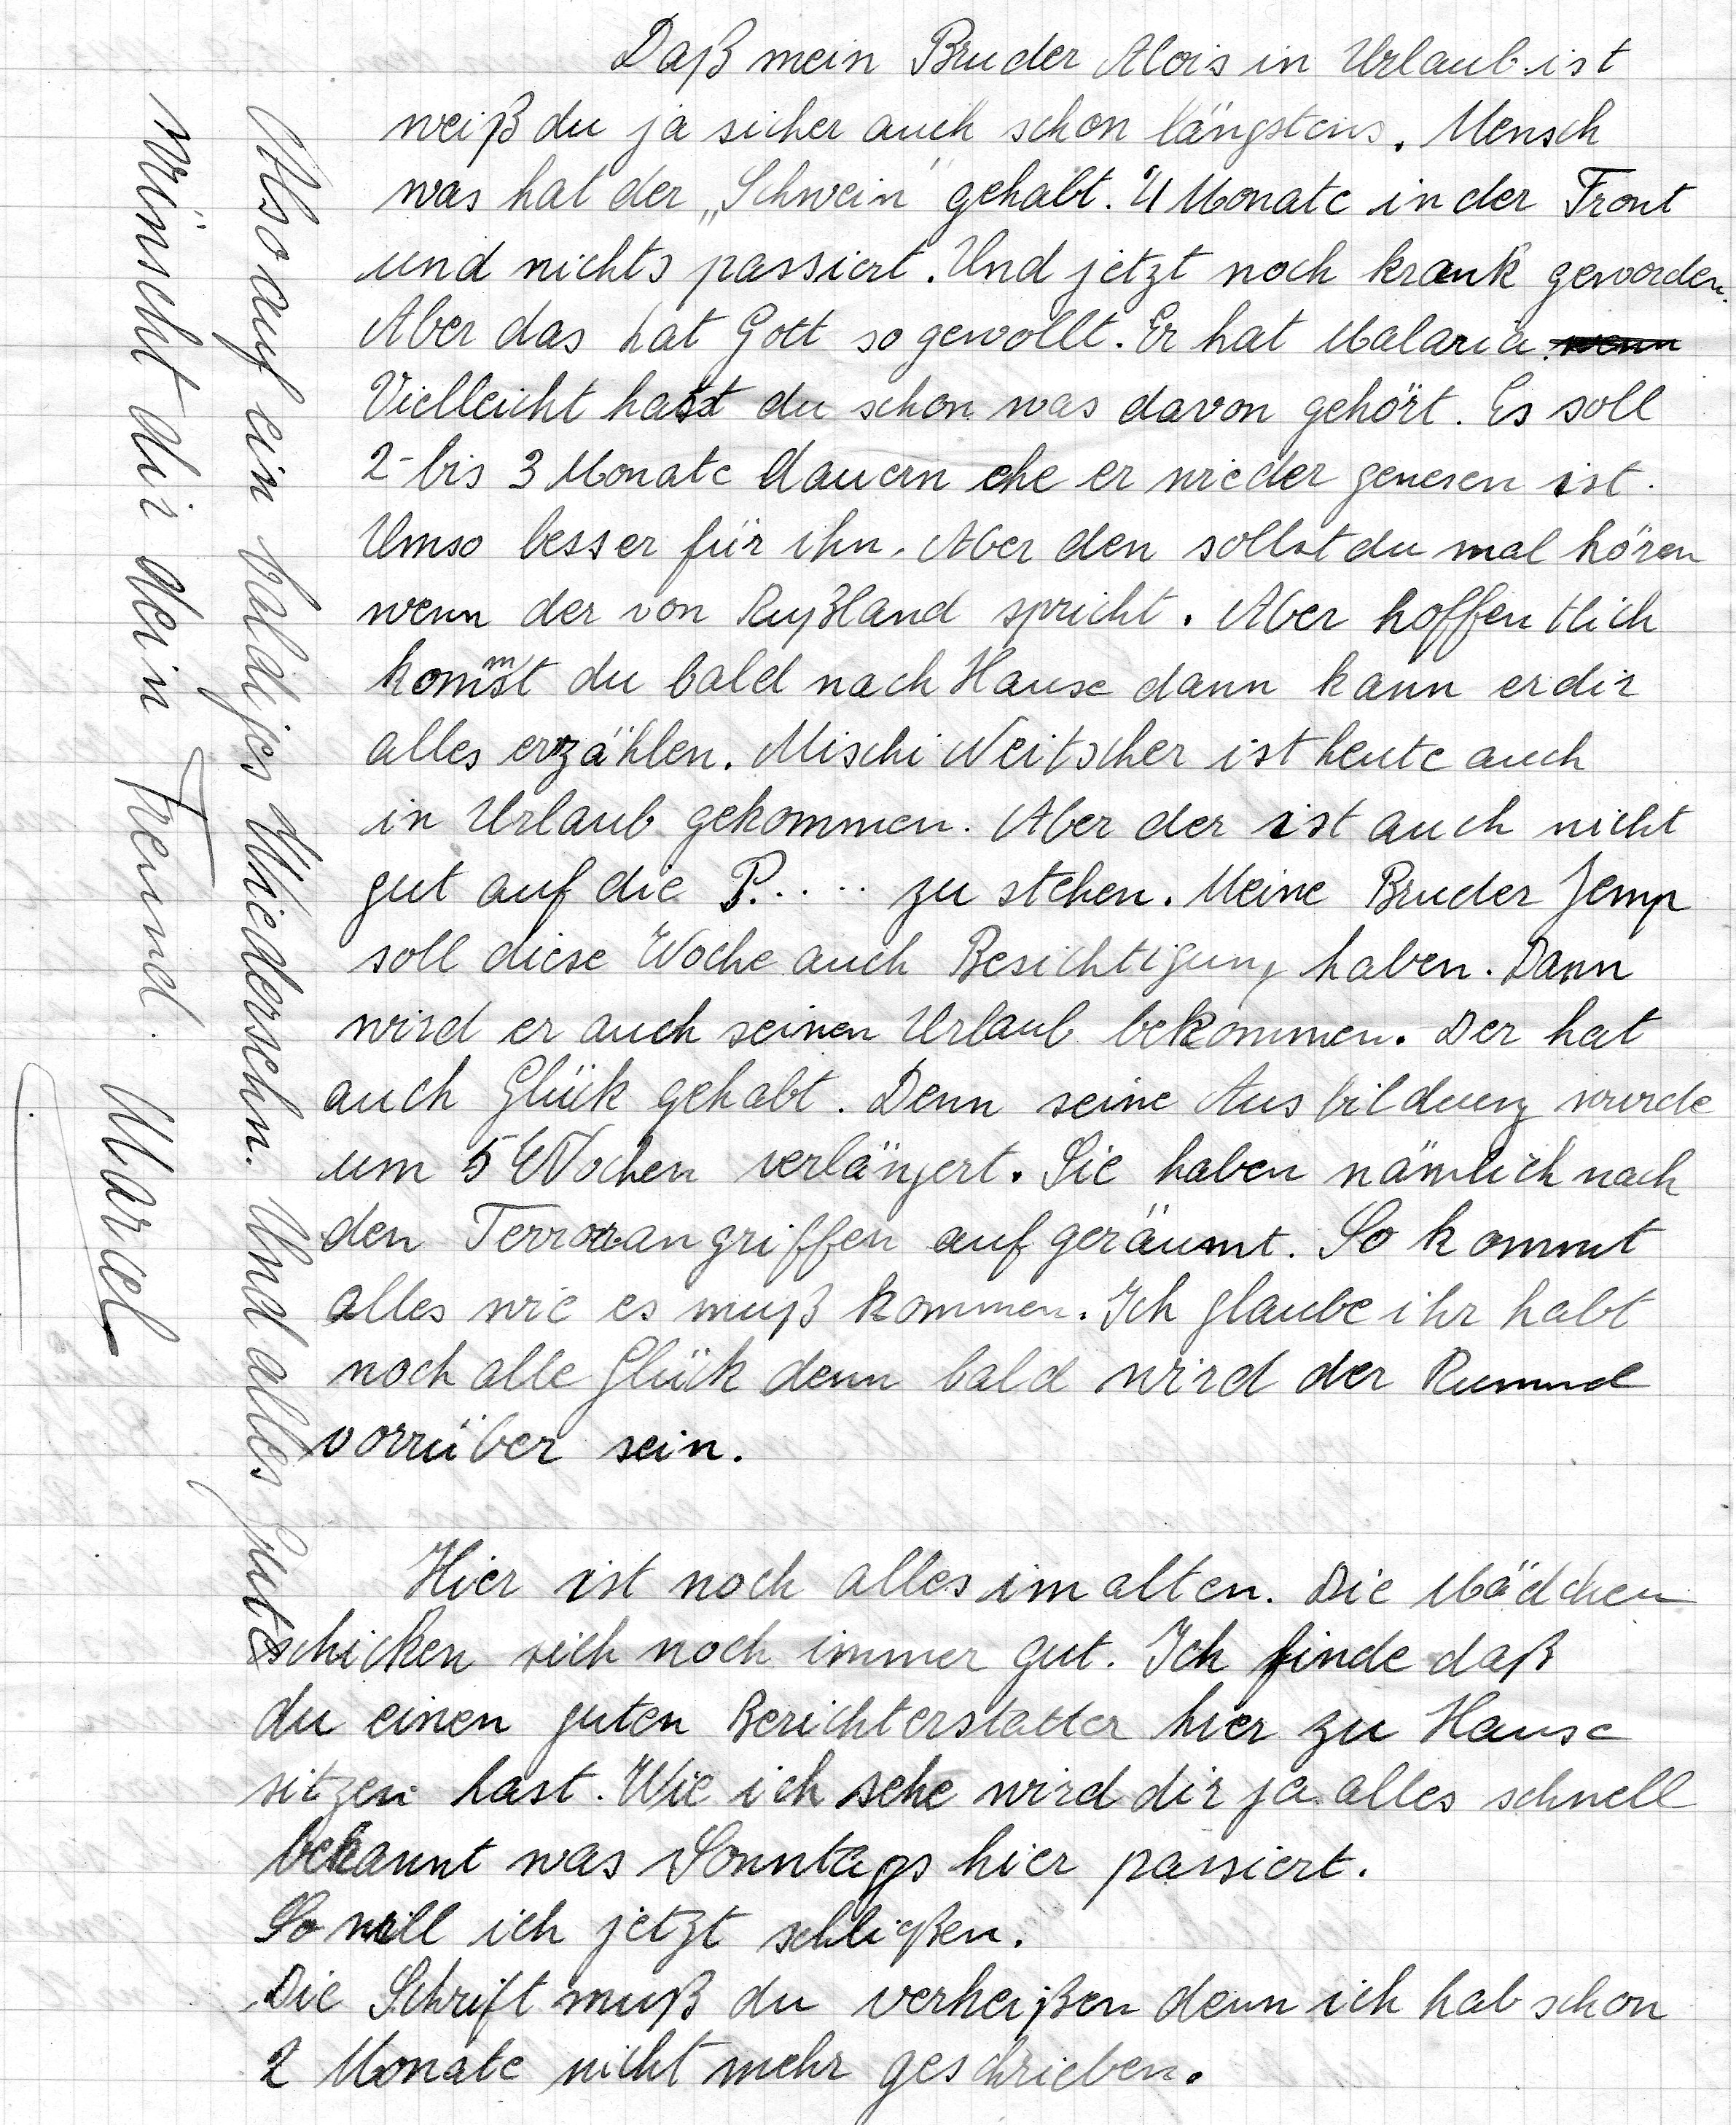 Daß mein Bruder Alois in Urlaub ist
weiß du ja sicher auch schon längstens. Mensch
was hat der „Schwein" gehabt. 4 Monate in der Front
und nichts passiert. Und jetzt noch krank geworden.
Aber das hat Gott so gewollt. Er hat Malaria. wenn
Vielleicht hast du schon was davon gehört. Es soll
2-bis 3 Monate dauern ehe er wieder genesen ist.
Umso besser für ihn. Aber den sollst du mal hören
wenn der von Rußland spricht. Aber hoffentlich
kommst du bald nach Hause dann kann er dir
alles erzählen. Mischi Weitscher ist heute auch
in Urlaub gekommen. Aber der ist auch nicht
gut auf die P..... zu stehen. Meine Bruder Jemp
soll diese Woche auch Besichtigung haben. Dann
wird er auch seinen Urlaub bekommen. Der hat
auch Glück gehabt. Denn seine Ausbildung wurde
um 5 Wochen verlängert. Sie haben nämlich nach
den Terrorangriffen aufgeräumt. So kommt
alles wie es muß kommen. Ich glaube ihr habt
noch alle Glück denn bald wird der Rummel
vorrüber sein.
Hier ist noch alles im alten. Die Mädchen
schicken sich noch immer gut. Ich finde daß
du einen guten Berichterstatter hier zu Hause
sitzen hast. Wie ich sehe wird dir ja alles schnell
bekannt was Sonntags hier passiert.
So will ich jetzt schließen.
Die Schrift muß du verheißen denn ich hab schon
2 Monate nicht mehr geschrieben.
Also auf ein baldiges Wiedersehn. Und alles Gute
wünscht dir dein Freund.
Marcel